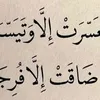 عَسَّرَتْ إِلَّا وَتَيَسَّر
ضَاقَتْ إِلَّا فُرِجَ